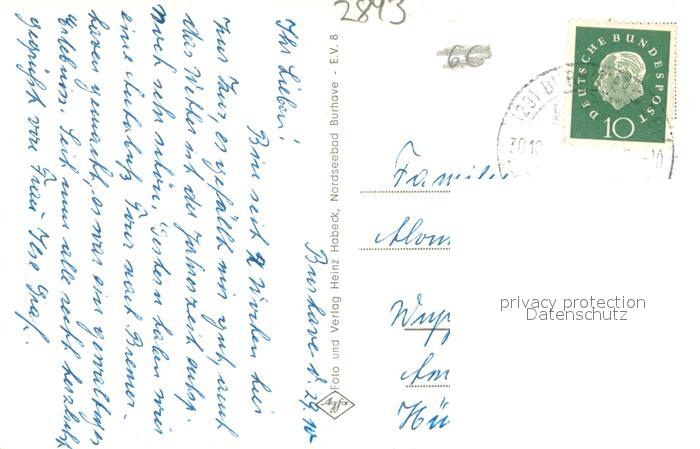 2893
66
DEUTSCHE BUNDESPOST
10
Foto und Verlag Heinz Habeck, Nordseebad Burhave - E.V. 8
Agfa
Burhave d. 29.10
Ihr Lieben!
Bin seit 2 Wochen hier
zur Kur, es gefällt mir gut, auch
das Wetter ist der Jahreszeit entspr.
noch sehr schön. Gestern haben wir
eine Autobus Tour nach Bremer-
haven gemacht, es war ein gewaltiges
Erlebnis. Seid nun alle recht herzlichst
gegrüßt von Frau Ilse Graf.
Familie
Wupp
Am
privacy protection
Datenschutz